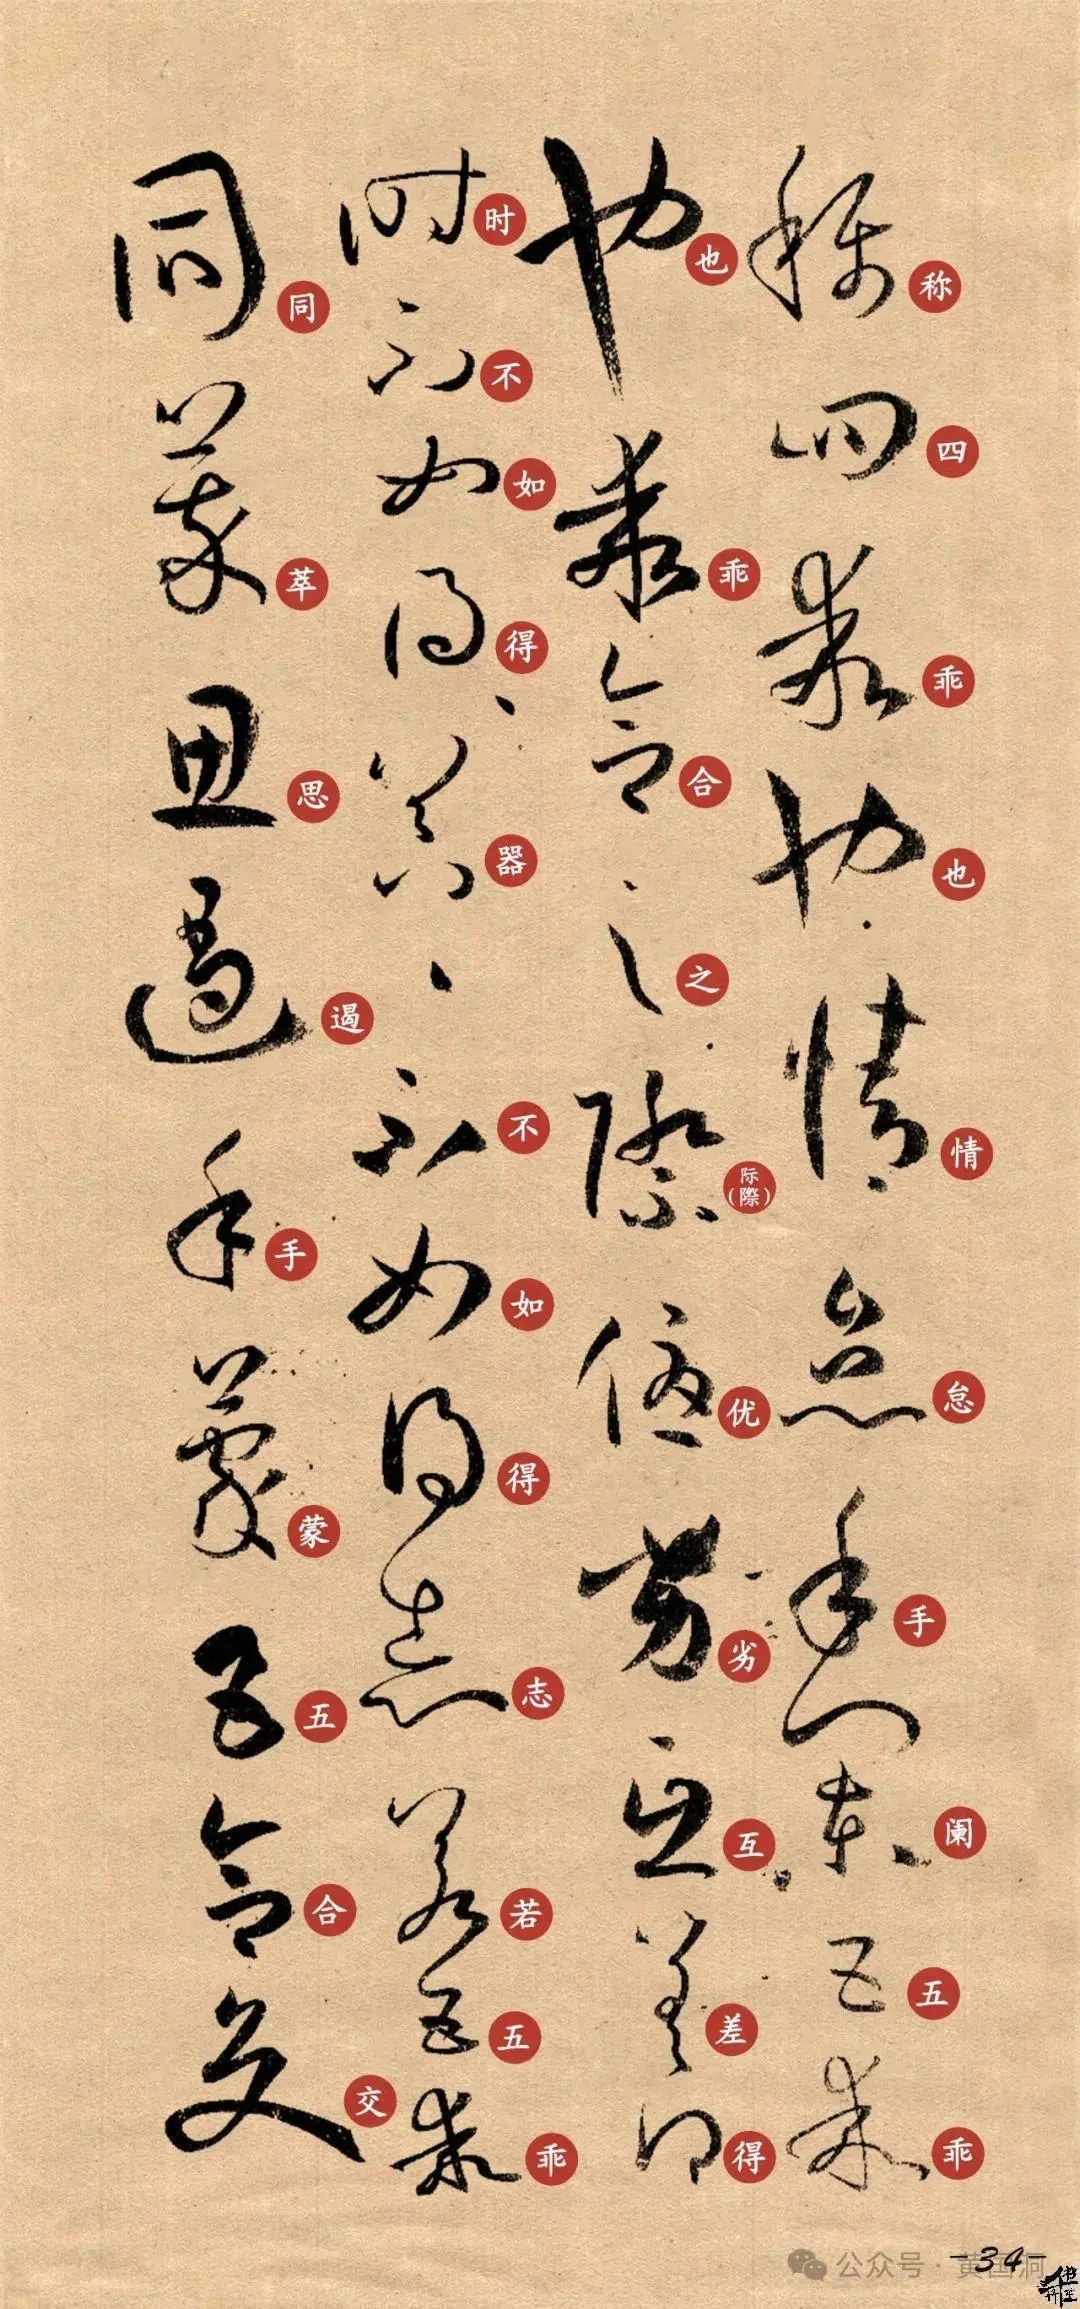 称四乖也情怠手阑五乖
也乖合之际(際)优劣互差得
时不如得、器、不如得志若五乖
同萃思遏手蒙五合交
-34-
公众号·黄国洞